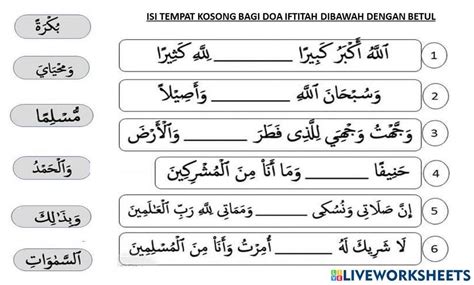 ISI TEMPAT KOSONG BAGI DOA IFTITAH DIBAWAH DENGAN BETUL
بُكْرَةً
وَمَحْيَايَ
مُّسْلِمًا
وَالْحَمْدُ
وَبِذَٰلِكَ
السَّمَٰوَاتِ
اَللَّهُ أَكْبَرُ كَبِيرًا ________ لِلَّهِ كَثِيرًا 1
وَسُبْحَانَ اللَّهِ ________ وَأَصِيلًا 2
وَجَّهْتُ وَجْهِيَ لِلَّذِى فَطَرَ ________ وَالْأَرْضَ 3
حَنِيفًا ________ وَمَا أَنَا۠ مِنَ الْمُشْرِكِينَ 4
إِنَّ صَلَاتِى وَنُسُكِى ________ وَمَمَاتِى لِلَّهِ رَبِّ الْعَالَمِينَ 5
لَا شَرِيكَ لَهُ ________ أُمِرْتُ وَأَنَا۠ مِنَ الْمُسْلِمِينَ 6
LIVEWORKSHEETS